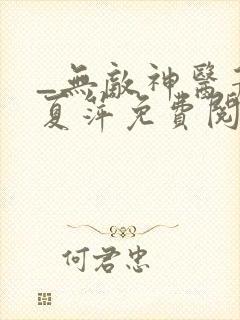 _無敵神醫
夏萍免費閱
何君忠